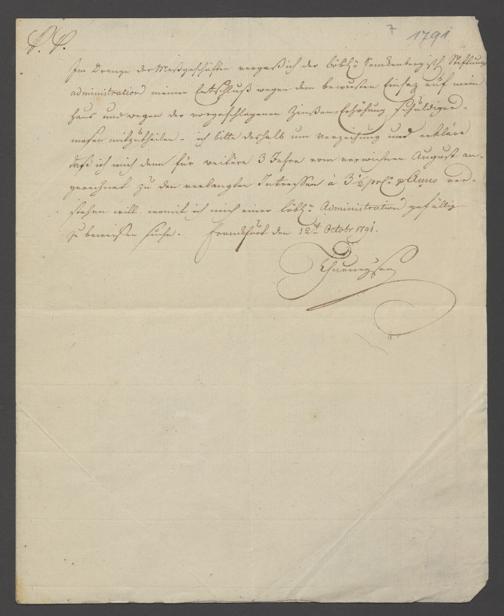 1791
P. P.
Im Drange der Meßgeschäfte vergaß ich der löbl. Senkenbergisch. Stiftungs
administration meinen Entschluß wegen dem bewusten Einsaz auf mein
Haus und wegen der vorgeschlagenen Zinßen Erhöhung schuldiger-
maßen mitzutheilen. ich bitte deshalb um Verzeihung und erkläre
daß ich mich dann für weitere 3 Jahre vom verwichenen August an-
gerechnet zu den verlangten Interessen à 3½ prC. p Anno ver-
stehen will womit ich mich einer löbl. Administration gefällig
zu beweisen suche. Frankfurt den 12 Octobr 1791.